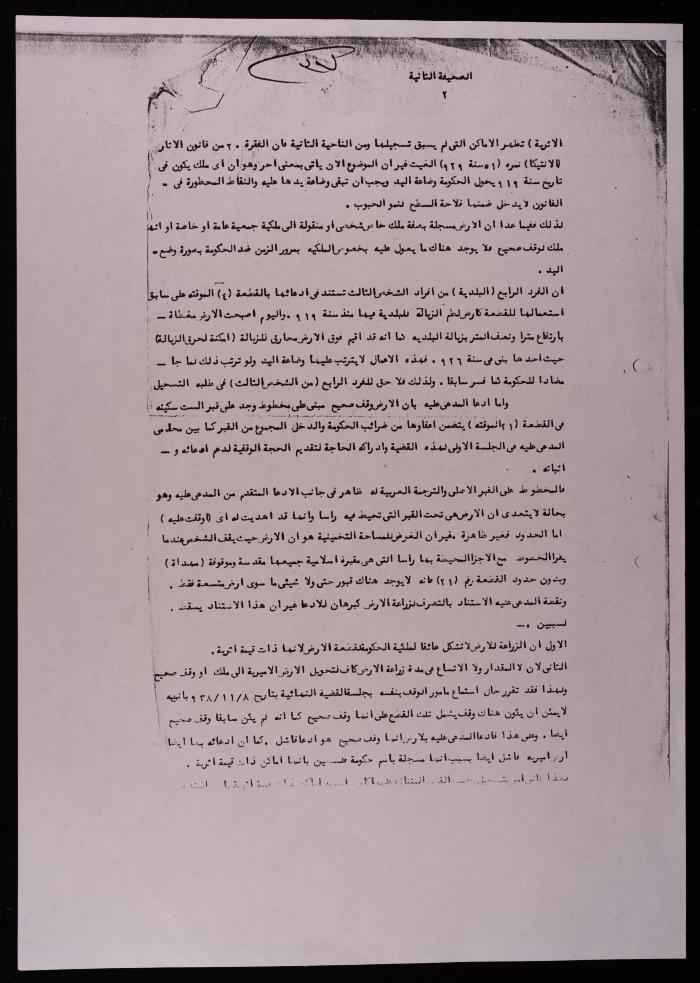 الصحيفة الثانية
٢
الاثرية ) تظهر الاماكن التى لم يسبق تسجيلها ومن الناحية الثانية فان الفقرة ٢٠ من قانون الاثار
(الانتيكا) نمره (٥١ سنة ٩٢٩) الغيت غير ان الموضوع الان ياتى بمعنى اخر وهو ان أى ملك يكون فى
تاريخ سنة ٩١٩ يخول الحكومة وضاعة اليد ويجب ان تبقى وضاعة يدها عليه والنقاط المحظورة فى ـ
القانون لا يدخل ضمنها فلاحة السطح فنمو الحبوب ٠
لذلك ففيما عدا ان الارض مسجلة بصفة ملك خاص شخصى او منقولة الى ملكية جمعية عامة او خاصة او انها
ملك لوقف صحيح فلا يوجد هناك ما يعول عليه بخصوص الملكيه بمرور الزمن ضد الحكومة بصورة وضع ـ
اليد ٠
ان الفرد الرابع (البلدية) من افراد الشخص الثالث تستند فى ادعائها بالقطعة (٤) الموقته على سابق
استعمالها للقطعة كارض لطم الزبالة للبلدية فيما منذ سنة ٩١٩ ٠ واليوم اصبحت الارض مغطاة ـ
بارتفاع مترا ونصف المتر بزبالة البلديه كما انه قد اقيم فوق الارض محارق للزبالة (امكنة لحرق الزبالة)
حيث احدها بنى فى سنة ٩٢٦ ٠ فهذه الاعمال لا يترتب عليها وضاعة اليد ولو ترتب ذلك لما جا ـ
مضادا للحكومة كما فسر سابقا ٠ ولذلك فلا حق للفرد الرابع (من الشخص الثالث) فى طلبه التسجيل
واما ادعا المدعى عليه بان الارض وقف صحيح مبنى على مخطوط وجد على قبر الست سكينه
فى القطعة (٢١ الموقته) يتضمن اعفاوها من ضرائب الحكومة والدخل المجموع من القبر كما بين محامى
المدعى عليه فى الجلسة الاولى لهذه القضية وادراكه الحاجة لتقديم الحجة الوقفية لدعم ادعائه و ـ
اثباته ٠
فالمخطوط على القبر الاصلى والترجمة العربية له ظاهر فى جانب الادعا المتقدم من المدعى عليه وهو
بحالة لا يتعدى ان الارض هى تحت القبر التى تحيط فيه راسا وانما قد اهديت له اى (اوقفت عليه )
اما الحدود فغير ظاهرة ٠ غير ان الغرض للمساحة التخمينية هو ان الارض حيث يقف الشخص عندما
يقرا الخطوط مع الاجزا المحيطة بها راسا التى هى مقبرة اسلامية جميعها مقدسة وموقوفة (مهداة)
وبدون حدود القطعة رقم (٢١) فانه لا يوجد هناك قبور حتى ولا شيئى ما سوى ارض متسعة فقط ٠
ونقطة المدعى عليه الاستناد بالتصرف لزراعة الارض كبرهان للادعا غير ان هذا الاستناد يسقط ٠
لسببين ٠ ـ
الاول ان الزراعة للارض لا تشكل عائقا لملكية الحكومة لقطعة الارض لانها ذات قيمة اثرية ٠
الثانى لان لا المقدار ولا الاتساع فى مدة زراعة الارض كاف لتحويل الارض الاميرية الى ملك او وقف صحيح
ولهذا فقد تقرر حال استماع مامور الوقف بنفسه بجلسة القضية النهائية بتاريخ ٩٣٨/١١/٨ بانه
لا يمكن ان يكون هناك وقف يشمل تلك القطع على انها وقف صحيح كما انه لم يكن سابقا وقف صحيح
ايضا ٠ وعلى هذا فادعا المدعى عليه بالارض انها وقف صحيح هو ادعا فاشل ٠ كما ان ادعائه بها ايضا
ارض اميريه فاشل ايضا بسبب انها مسجلة باسم حكومة فلسطين بانها اماكن ذات قيمة اثرية ٠